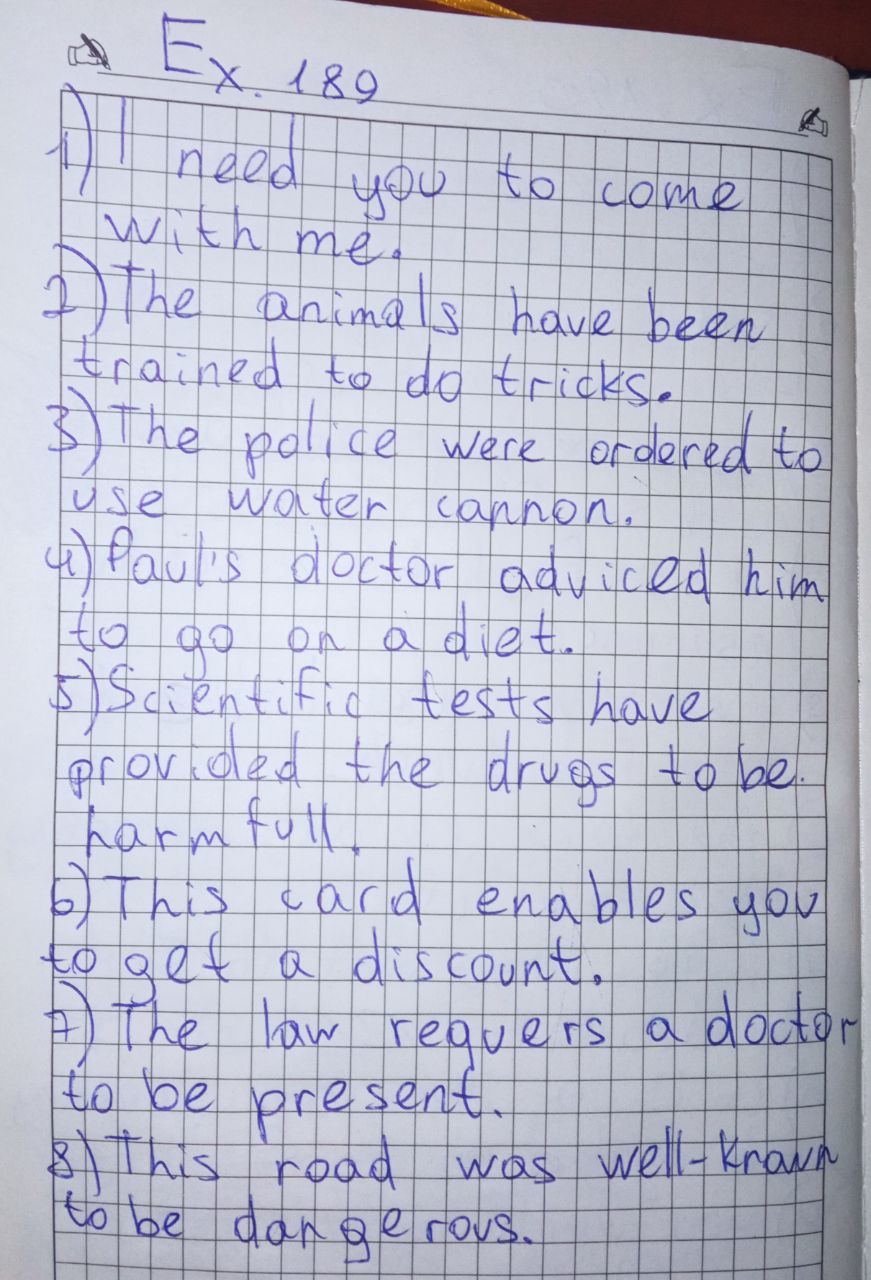 Ex. 189
1) I need you to come
with me.
2) The animals have been
trained to do tricks.
3) The police were ordered to
use water cannon.
4) Paul's doctor adviced him
to go on a diet.
5) Scientific tests have
provided the drugs to be
harmfull.
6) This card enables you
to get a discount.
7) The law requers a doctor
to be present.
8) This road was well-known
to be dangerous.